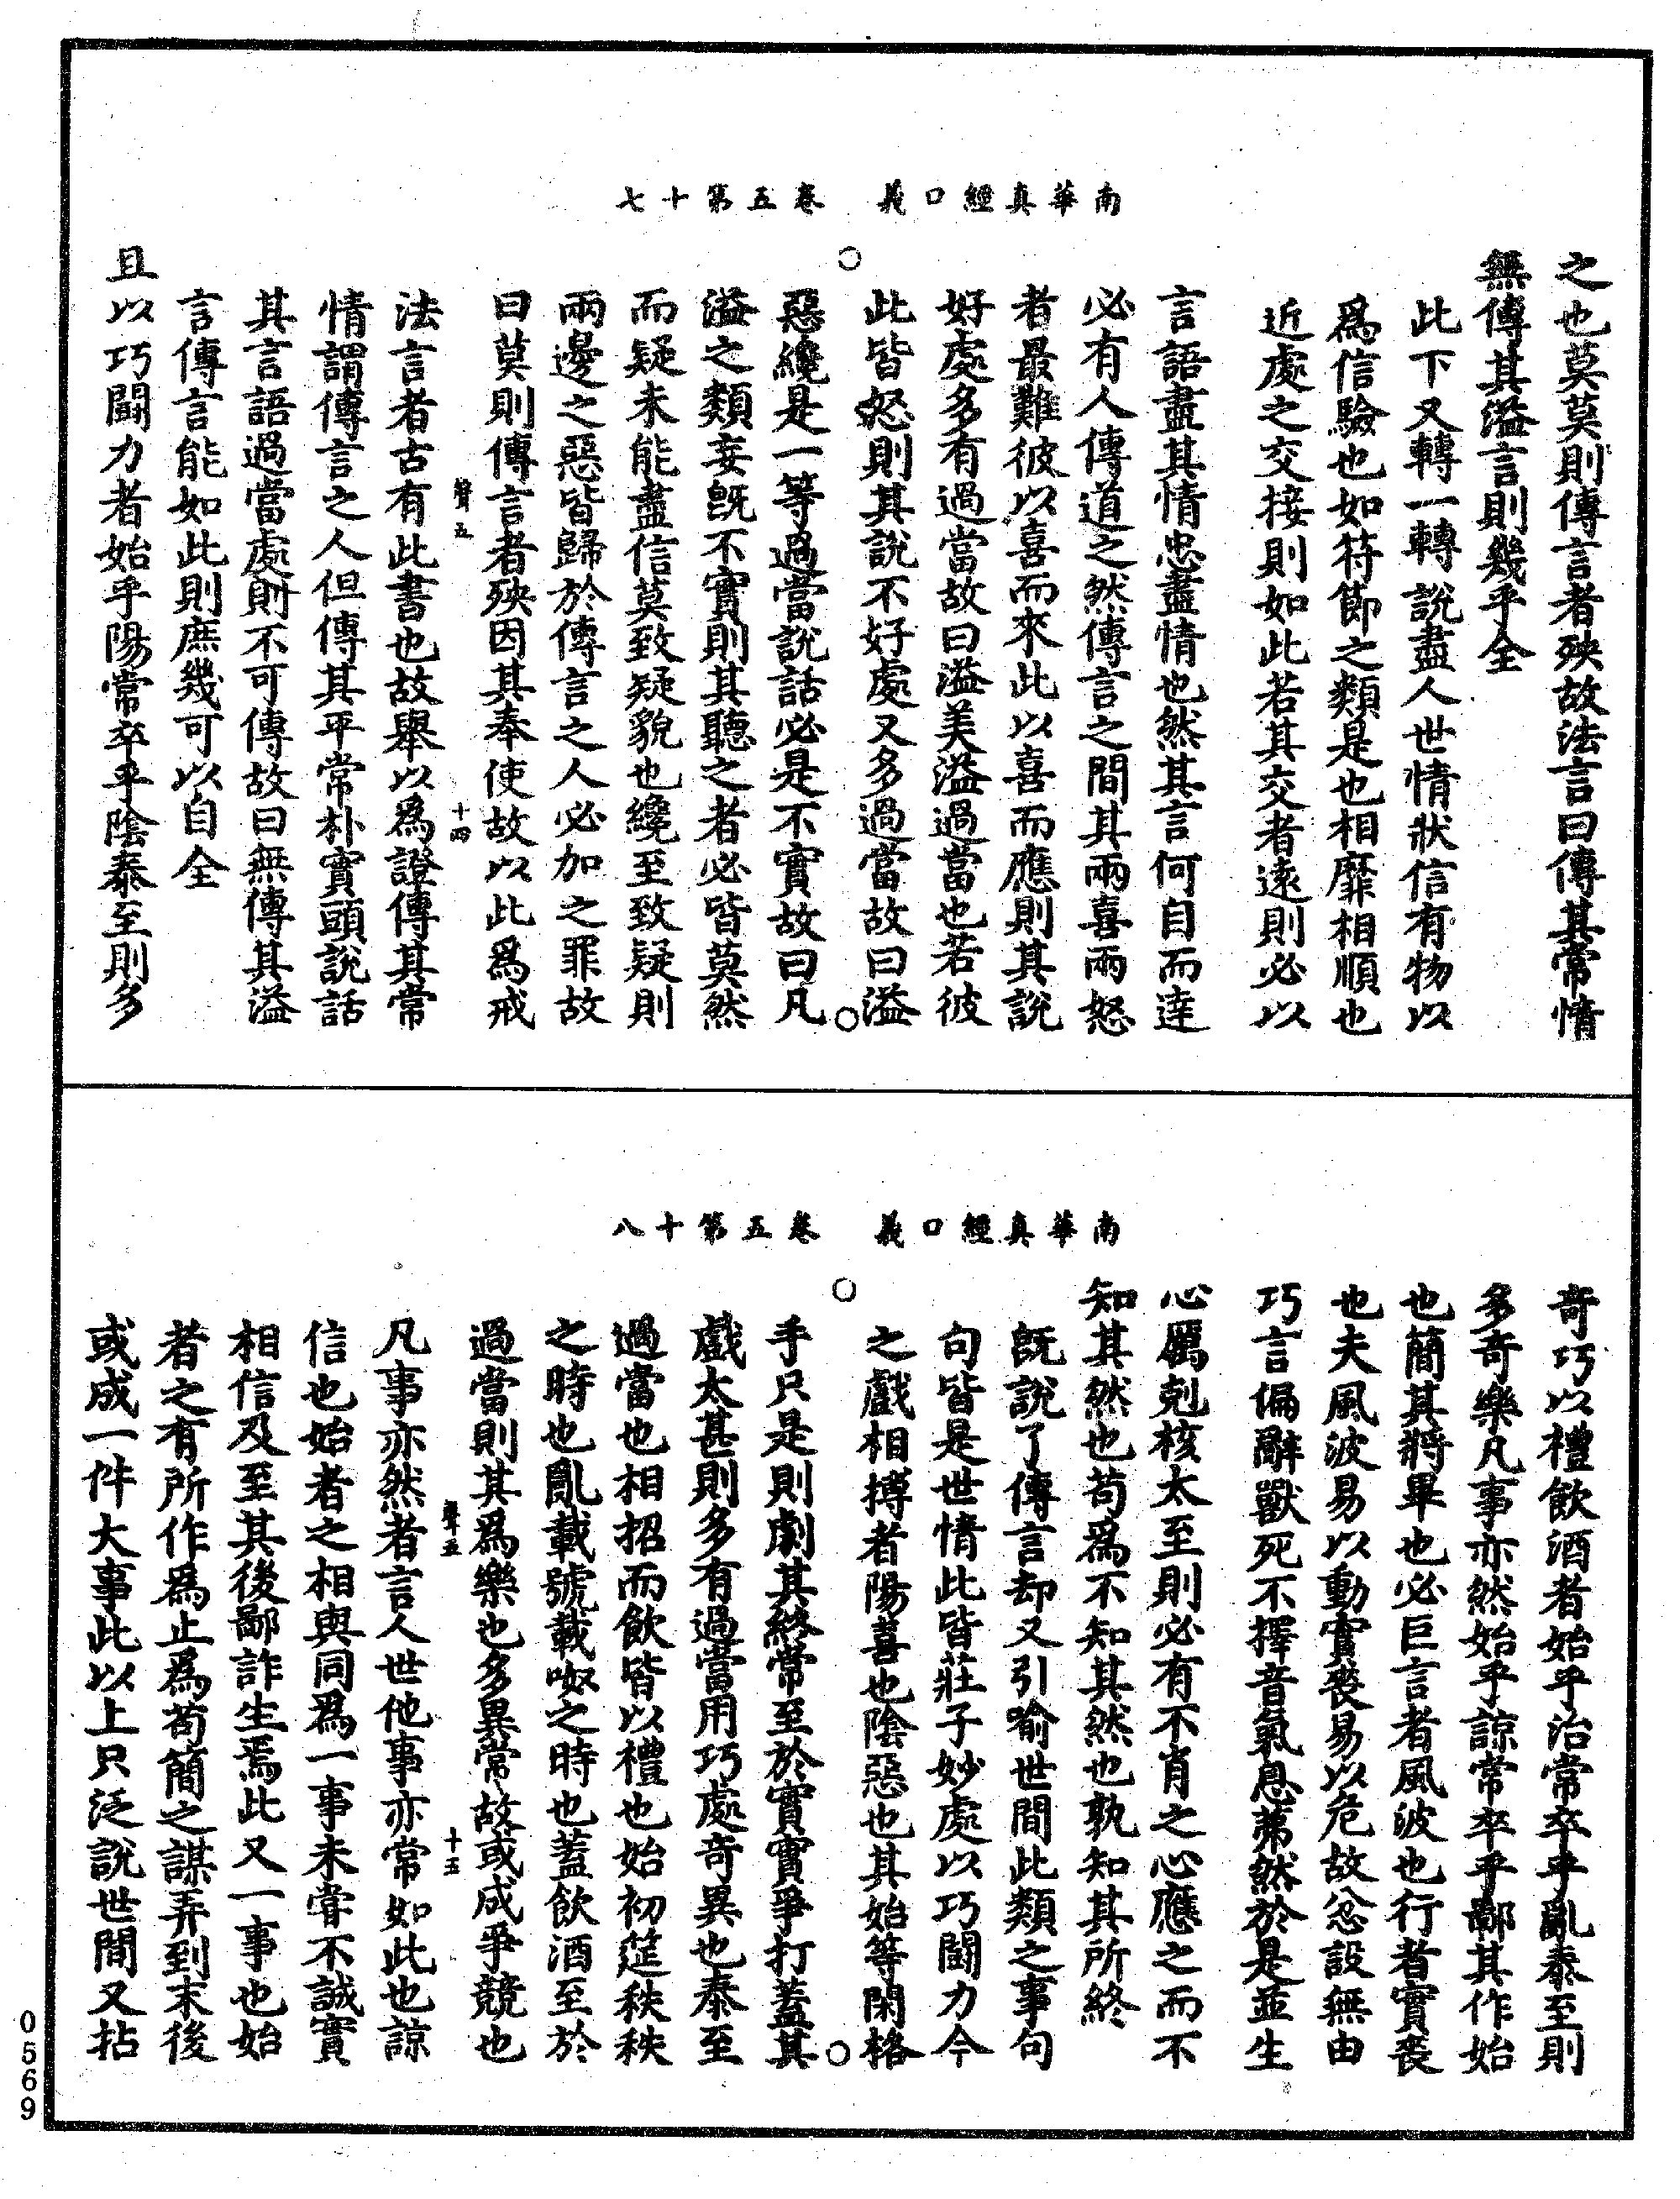 南華真經口義　卷五第十七
之也莫莫則傳言者殃故法言曰傳其常情
無傳其溢言則幾乎全
此下又轉一轉說盡人世情狀信有物以
爲信驗也如符節之類是也相靡相順也
近處之交接則如此若其交者遠則必以
言語盡其情忠盡情也然其言何自而達
必有人傳道之然傳言之間其兩喜兩怒
者最難彼以喜而來此以喜而應則其說
好處多有過當故曰溢美溢過當也若彼
此皆怒則其說不好處又多過當故曰溢
惡纔是一等過當說話必是不實故曰凡
溢之類妄旣不實則其聽之者必皆莫然
而疑未能盡信莫致疑貌也纔至致疑則
兩邊之惡皆歸於傳言之人必加之罪故
曰莫則傳言者殃因其奉使故以此爲戒
聲五　十四
法言者古有此書也故舉以爲證傳其常
情謂傳言之人但傳其平常朴實頭說話
其言語過當處則不可傳故曰無傳其溢
言傳言能如此則庶幾可以自全
且以巧鬪力者始乎陽常卒乎陰泰至則多
南華真經口義　卷五第十八
奇巧以禮飲酒者始乎治常卒乎亂泰至則
多奇樂凡事亦然始乎諒常卒乎鄙其作始
也簡其將畢也必巨言者風波也行者實喪
也夫風波易以動實喪易以危故忿設無由
巧言偏辭獸死不擇音氣息茀然於是並生
心厲剋核太至則必有不肖之心應之而不
知其然也苟爲不知其然也孰知其所終
旣說了傳言却又引喻世間此類之事句
句皆是世情此皆莊子妙處以巧鬪力今
之戲相搏者陽喜也陰惡也其始等閑格
手只是則劇其終常至於實實爭打蓋其
戲太甚則多有過當用巧處奇異也泰至
過當也相招而飲皆以禮也始初筵秩秩
之時也亂載號載呶之時也蓋飲酒至於
過當則其爲樂也多異常故或成爭競也
聲五　十五
凡事亦然者言人世他事亦常如此也諒
信也始者之相與同爲一事未甞不誠實
相信及至其後鄙詐生焉此又一事也始
者之有所作爲止爲苟簡之謀弄到末後
或成一件大事此以上只泛說世間又拈
0569